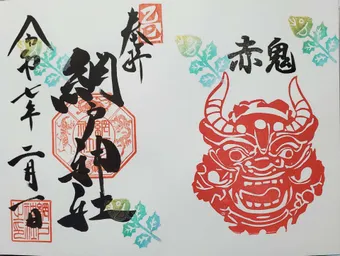 赤鬼
乙巳
奉拝
網戸神社
令和七年 二月一日